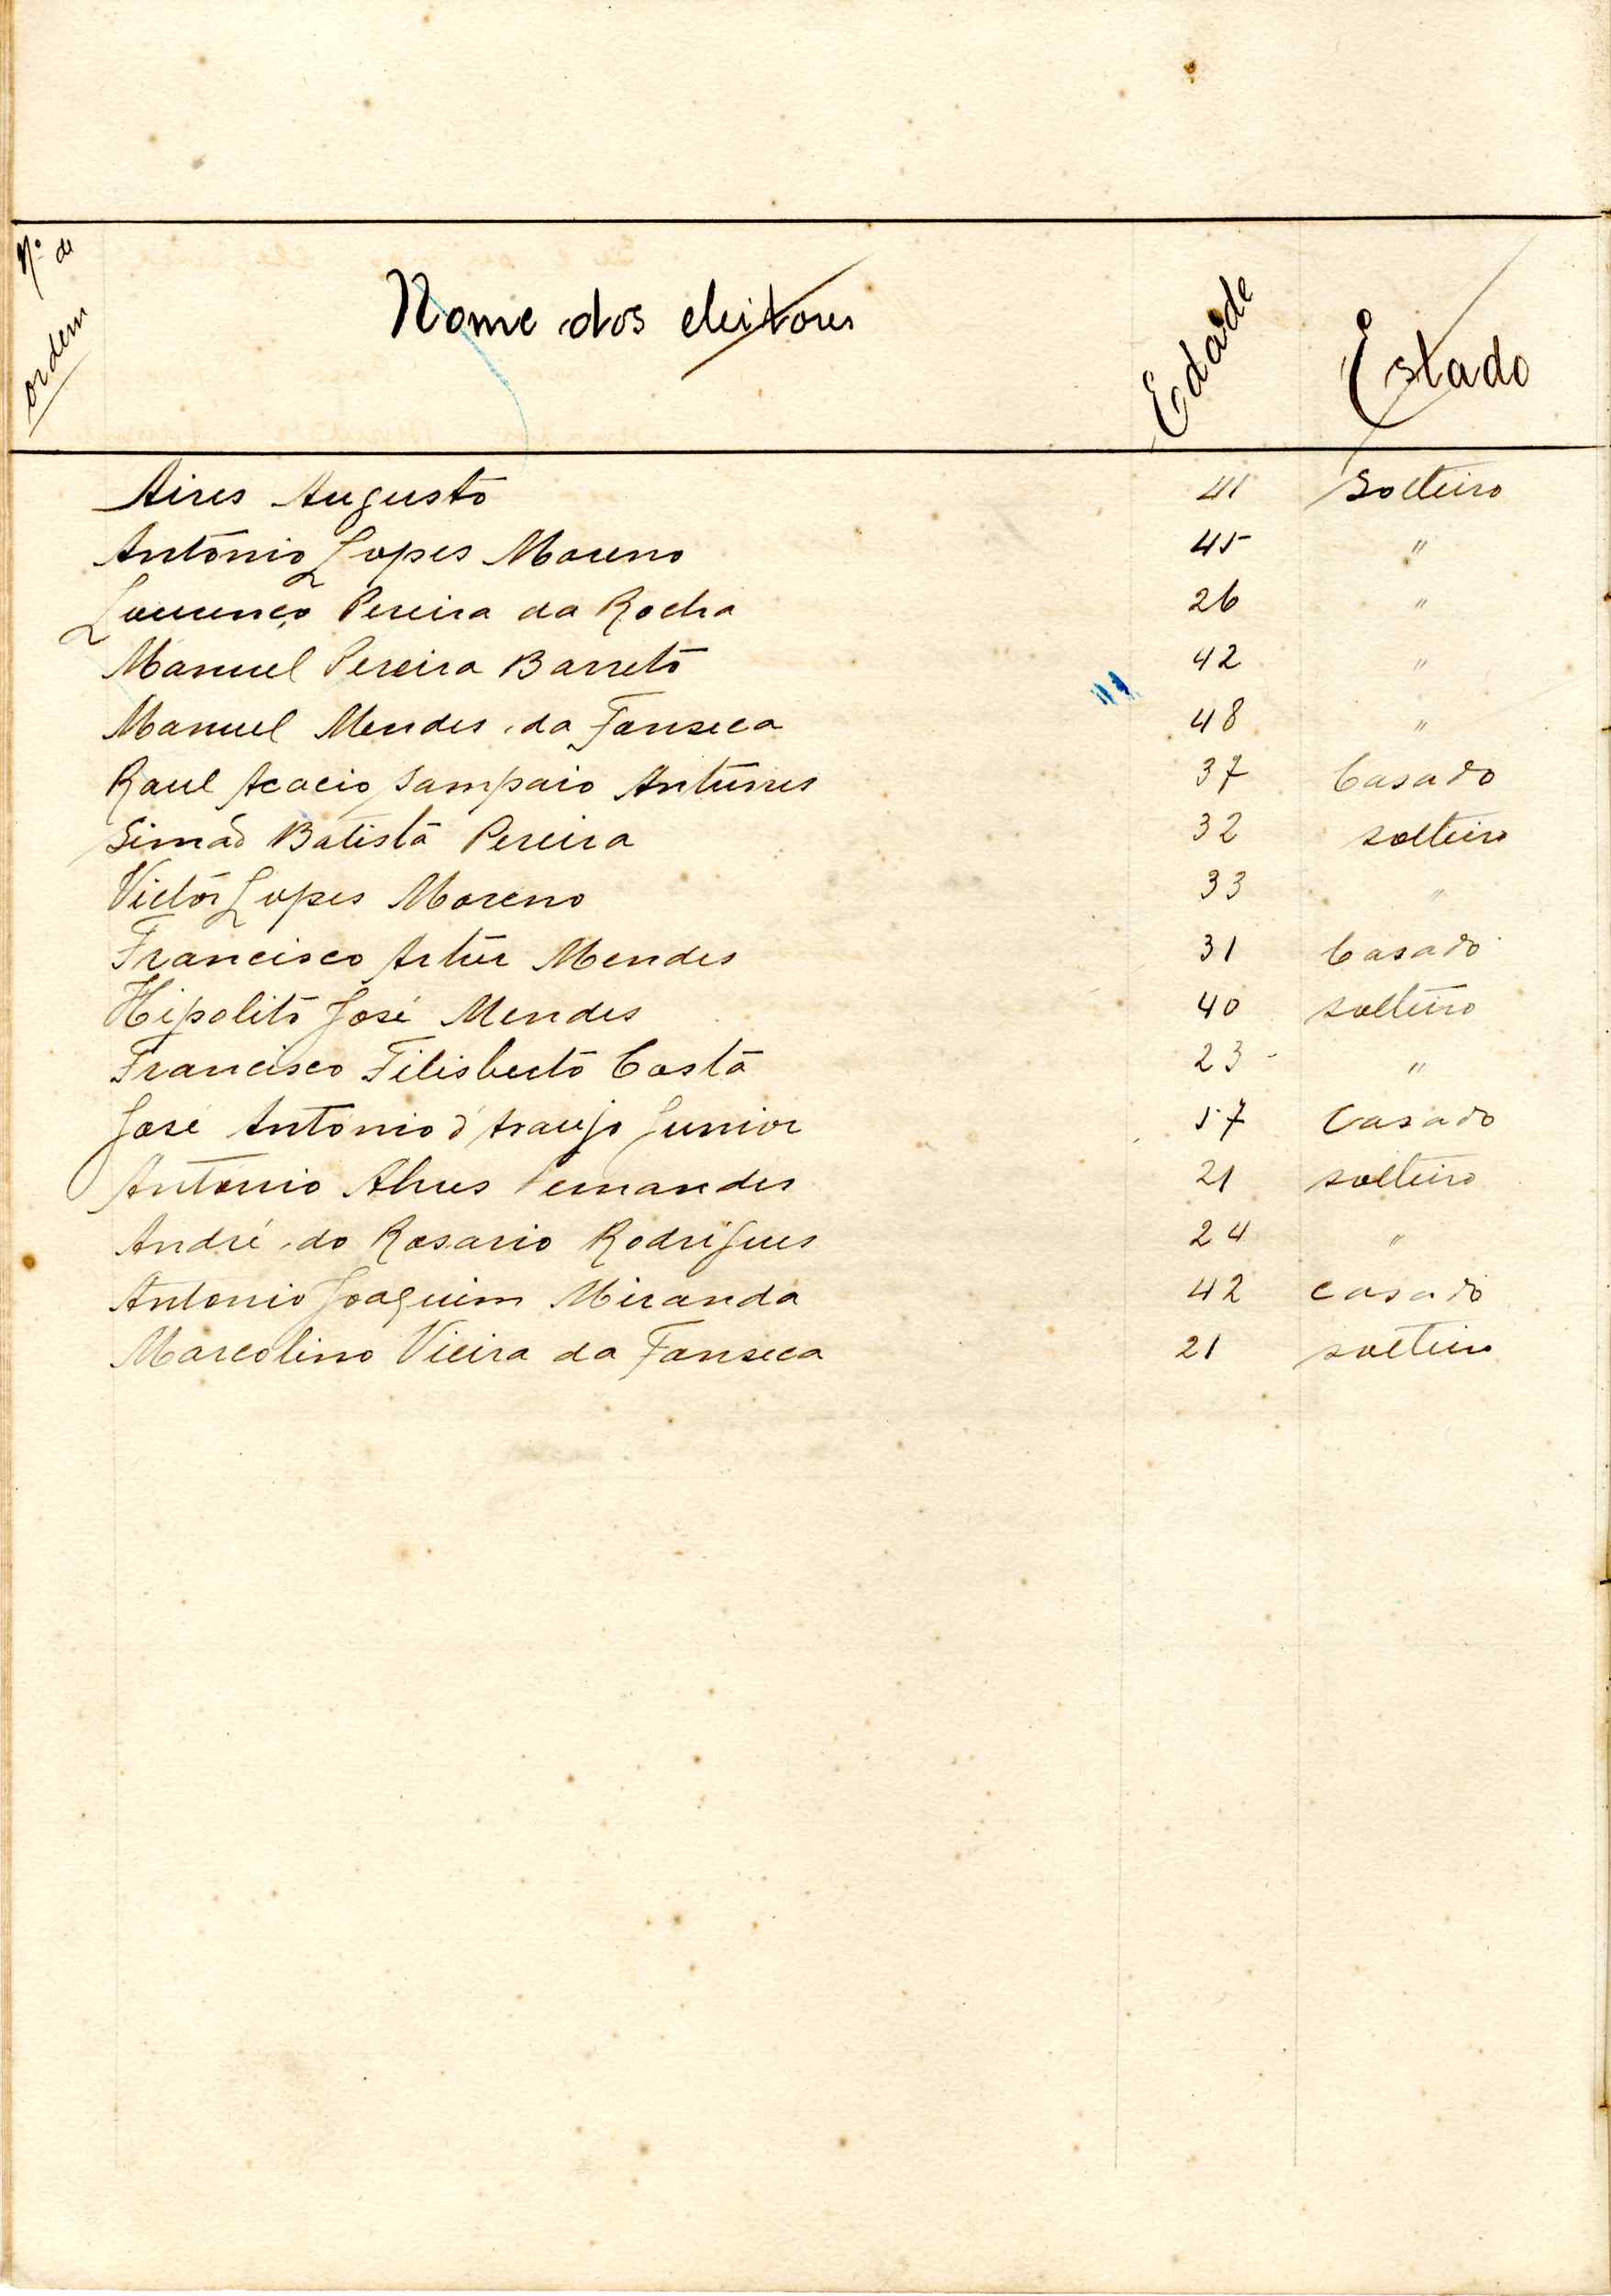 Nº de ordem Nome dos eleitores Edade Estado
Aires Augusto 41 Solteiro
António Lopes Moreno 45 "
Lourenço Pereira da Rocha 26 "
Manuel Pereira Barreto 42 "
Manuel Mendes da Fonseca 48 "
Raul Acacio Sampaio Antunes 37 Casado
Simão Batista Pereira 32 solteiro
Victor Lopes Moreno 33 "
Francisco Artur Mendes 31 Casado
Hipolito José Mendes 40 solteiro
Francisco Filisberto Costa 23 "
José António d'Araujo Junior 57 Casado
António Alves Fernandes 21 solteiro
André do Rosario Rodrigues 24 "
Antonio Joaquim Miranda 42 casado
Marcolino Vieira da Fonseca 21 solteiro